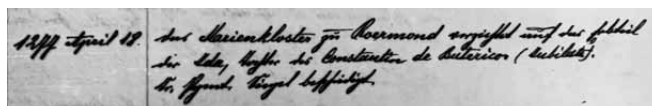 1277 April 18. das Marienkloster zu Roermond verzichtet auf das Erbteil
der Ida, Tochter des Constantin de Butericos (Aubilate).
Or. Pergmt. Siegel beschädigt.